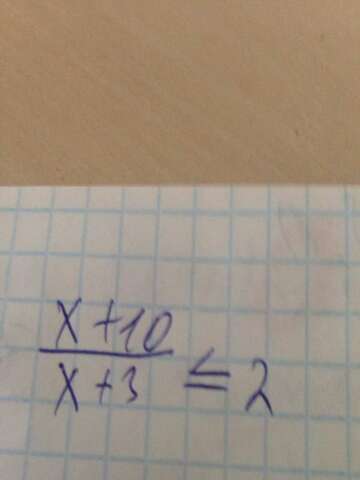 x+10
x+3 ≤ 2